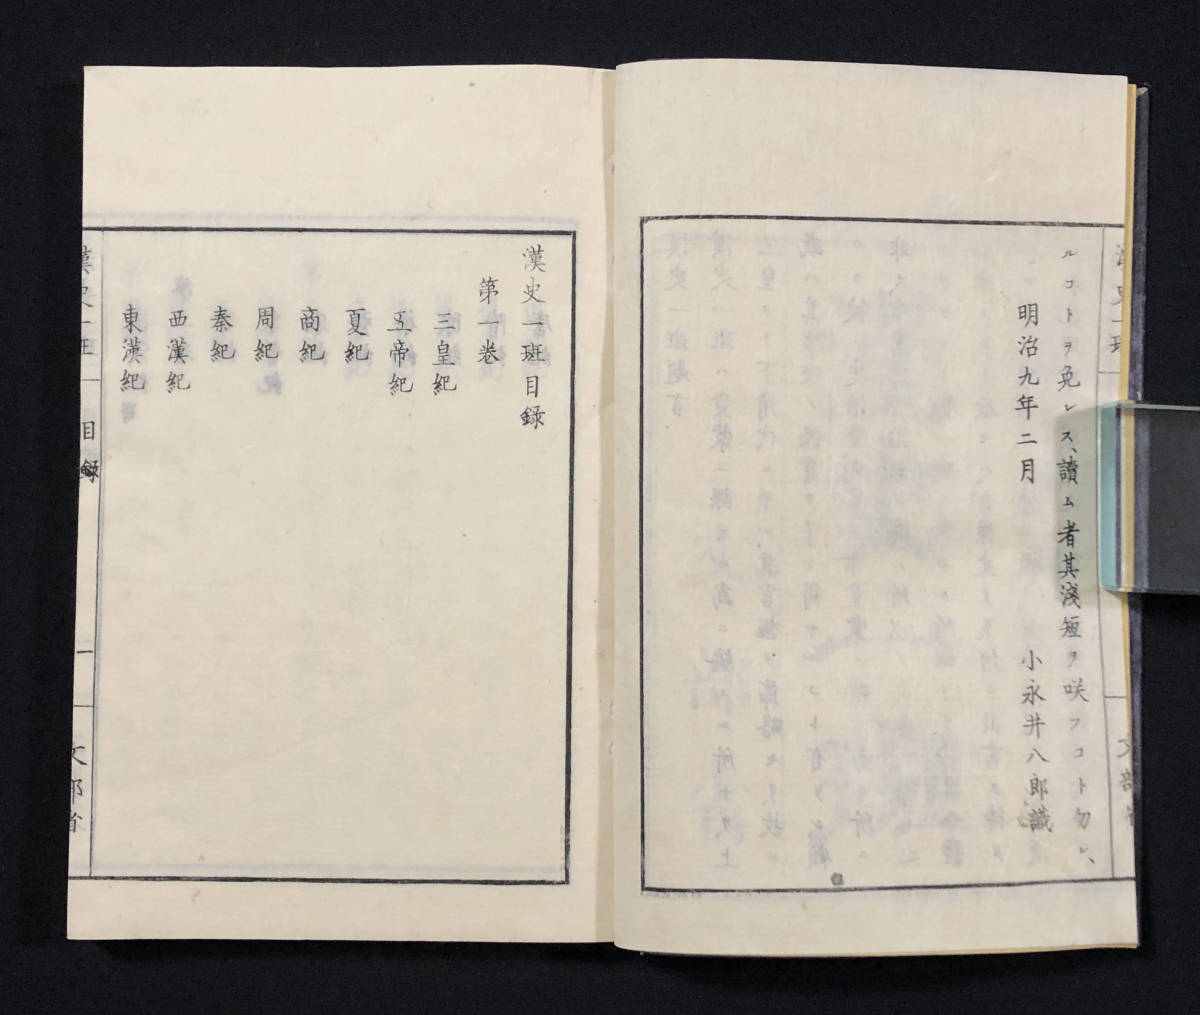 ルコトヲ免レス、讀ム者其淺短ヲ咲フコト勿レ、
明治九年二月
小永井八郎識
漢史一班目録
第一巻
三皇紀
五帝紀
夏紀
商紀
周紀
秦紀
西漢紀
東漢紀
漢史一班
目録
一
文部省